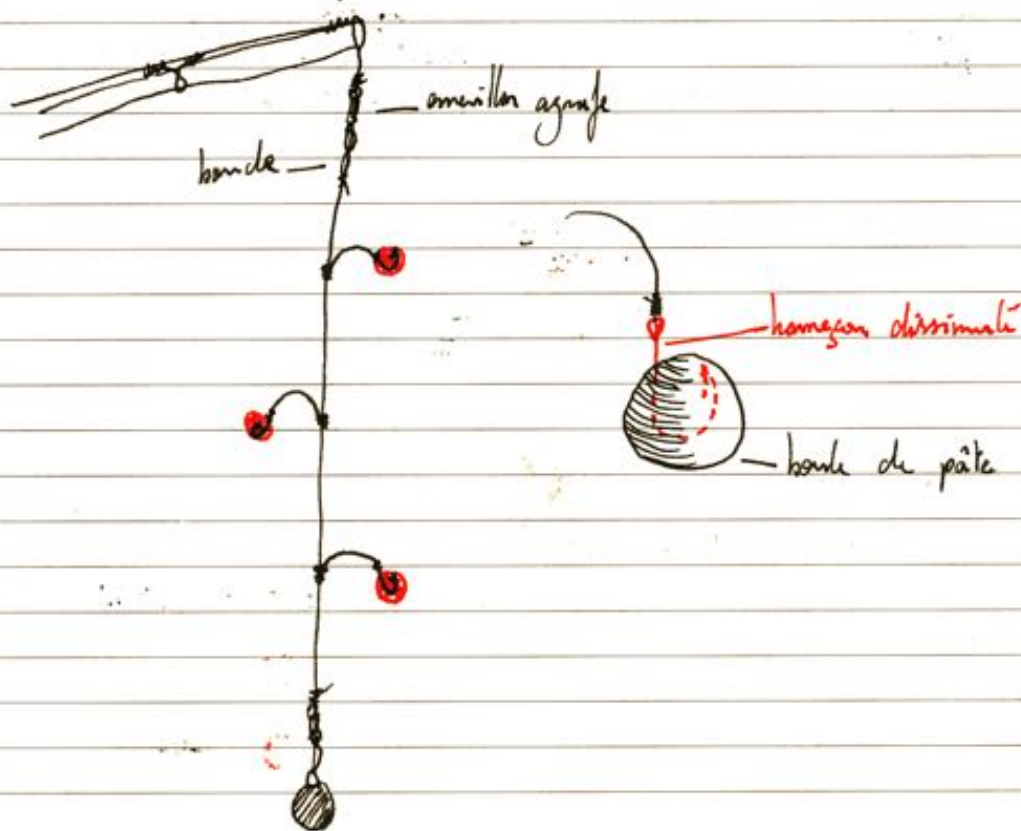 émerillon agrafe
boucle
hameçon dissimulé
boule de pâte